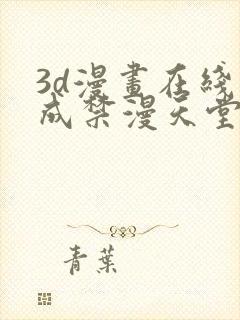 3d漫畫在綫
成禁漫天堂
青葉